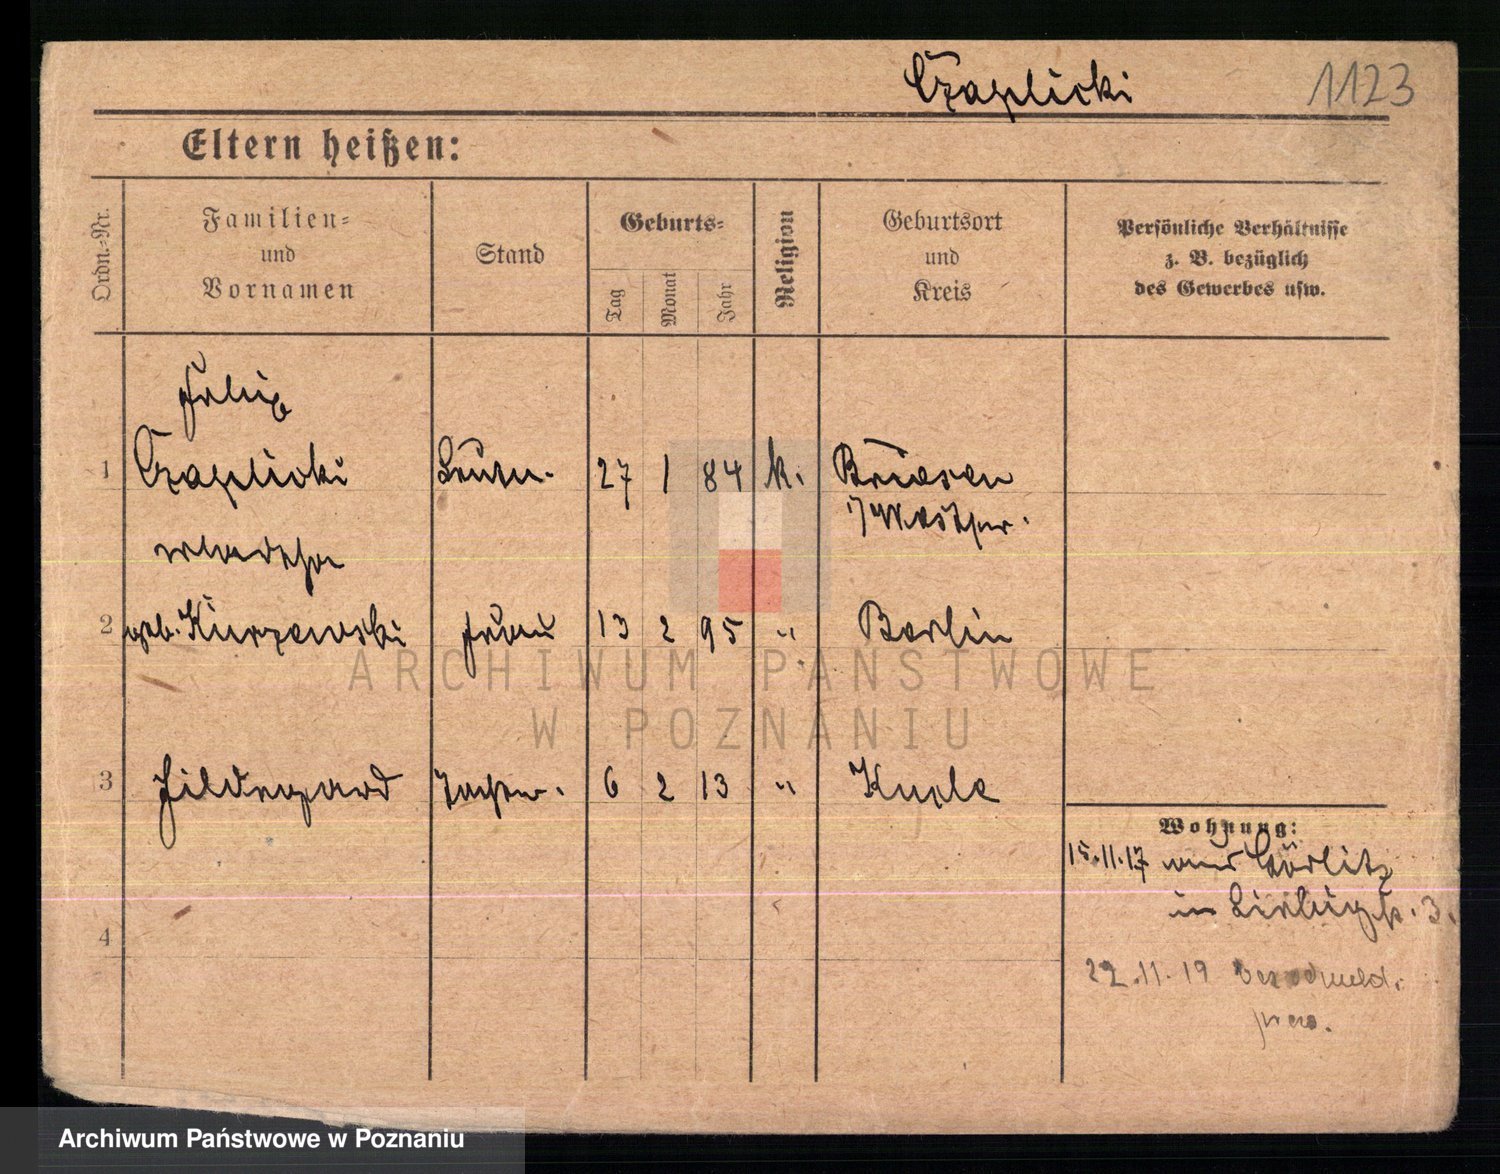 Czaplicki 1123
Eltern heißen:
Ordn.-Nr.
Familien-
und
Vornamen
Stand
Geburts-
Tag
Monat
Jahr
Religion
Geburtsort
und
Kreis
Persönliche Verhältnisse
z. B. bezüglich
des Gewerbes usw.
Felix
1 Czaplicki Leutn. 27 1 84 k. Briesen
i/Westpr.
2 geb. Kurzewski Frau 13 2 95 " Berlin
3 Hildegard Tochter. 6 2 13 "
Wohnung:
15.11.17 Görlitz
in 3.
4
22.11.19
ARCHIWUM PAŃSTWOWE
W POZNANIU
Archiwum Państwowe w Poznaniu